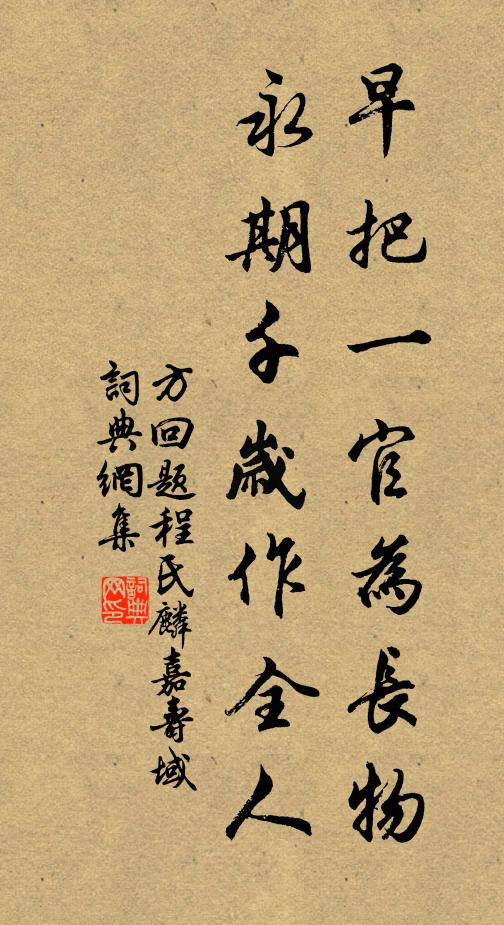 早把一官為長物
永期千歲作全人
方回題程氏麟嘉壽域
詞典網集
詞典網印